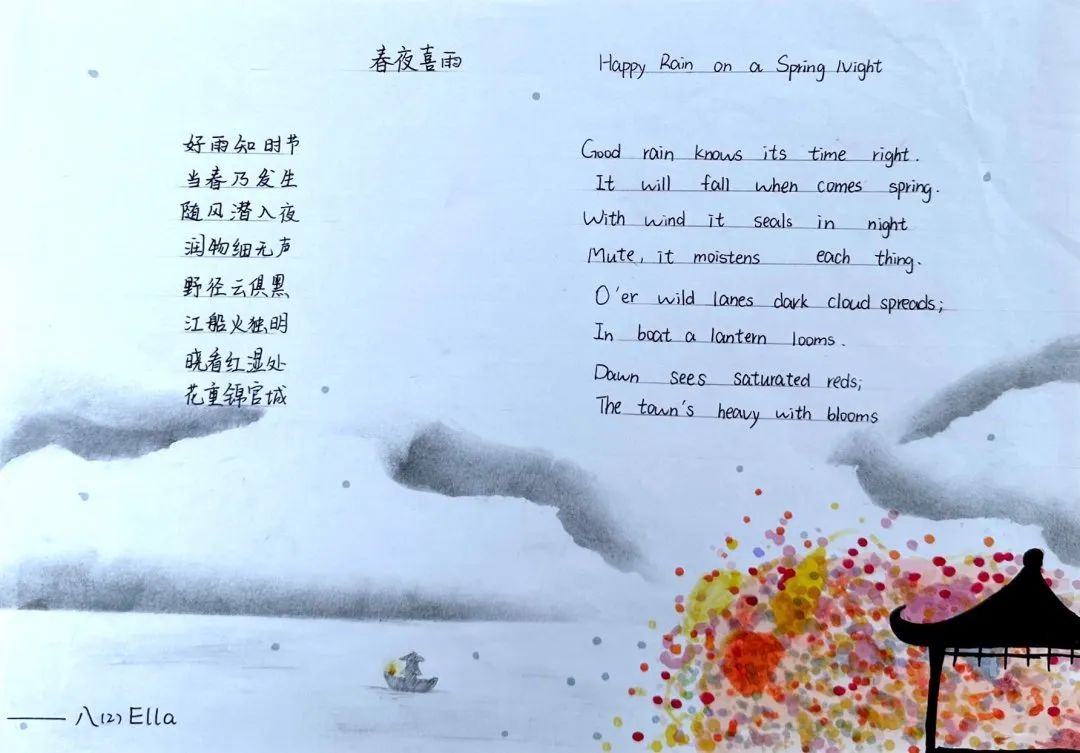 春夜喜雨
好雨知时节
当春乃发生
随风潜入夜
润物细无声
野径云俱黑
江船火独明
晓看红湿处
花重锦官城
Happy Rain on a Spring Night
Good rain knows its time right.
It will fall when comes spring.
With wind it seals in night
Mute, it moistens each thing.
O'er wild lanes dark cloud spreads;
In boat a lantern looms.
Dawn sees saturated reds;
The town's heavy with blooms
——八(2) Ella